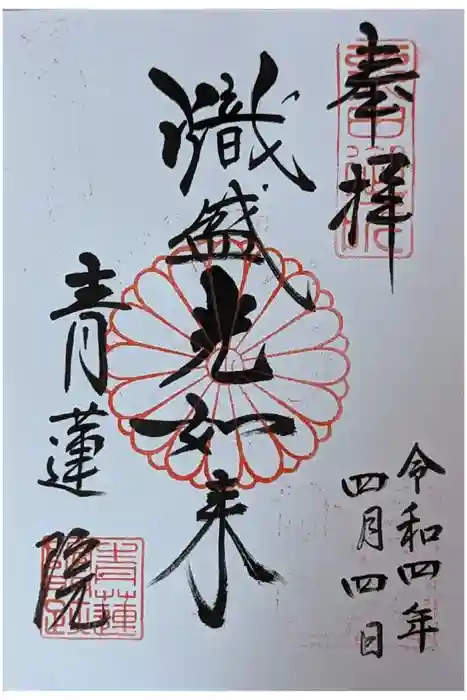 奉拝
令和四年
四月四日
熾盛光如来
青蓮院